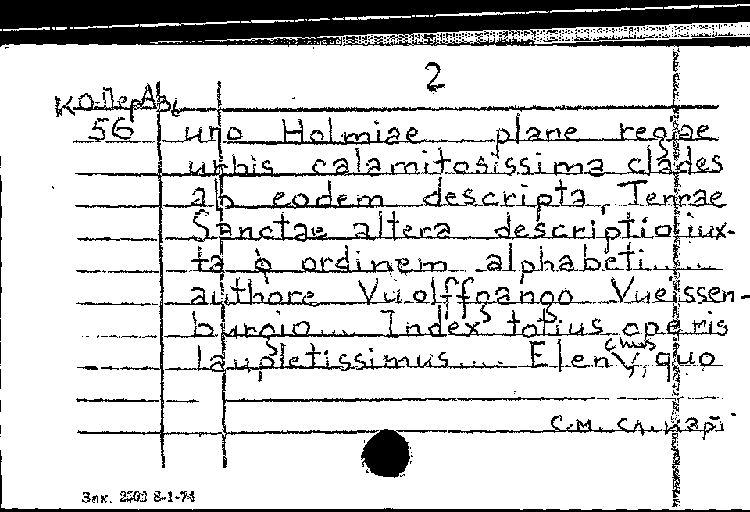 2
КО-ПерА36
56 uno Holmiae plane regiae
urbis calamitosissima clades
ab eodem descripta, Terrae
Sanctae altera descriptio iux-
ta ordinem alphabeti......
authore Vuolffgango Vueissen-
burgio.... Index totius operis
laupletissimus.... Elenchus, quo
см. сл. карт
Зак. 2202 8-1-74